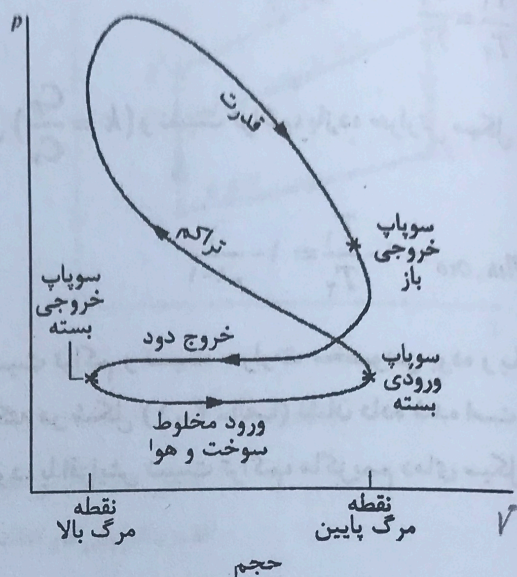 P
قدرت
تراکم
سوپاپ
خروجی
باز
سوپاپ
خروجی
بسته
خروج دود
سوپاپ
ورودی
بسته
ورود مخلوط
سوخت و هوا
نقطه
مرگ بالا
نقطه
مرگ پایین
V
حجم